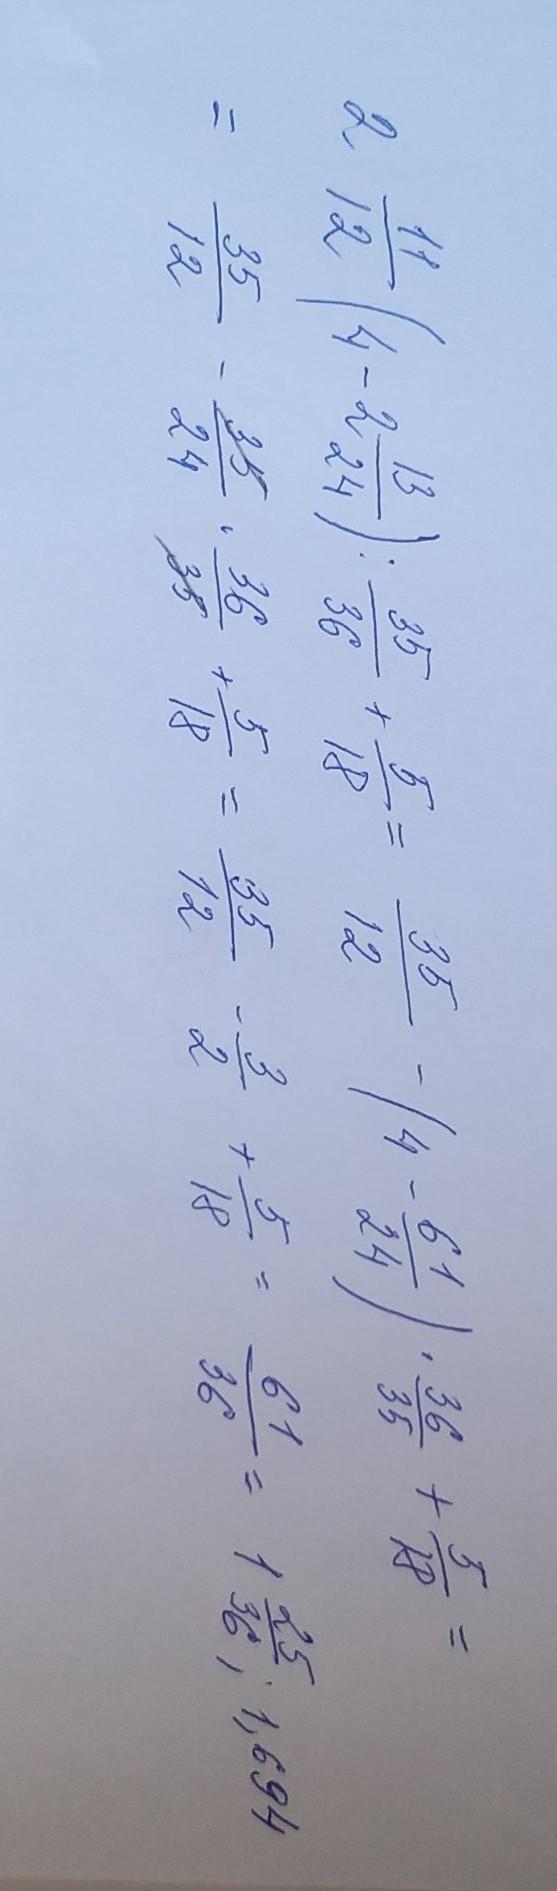 2 11/12 (4 - 2 13/24) : 35/36 + 5/18 = 35/12 - (4 - 61/24) · 36/35 + 5/18 =
= 35/12 - 35/24 · 36/35 + 5/18 = 35/12 - 3/2 + 5/18 = 61/36 = 1 25/36; 1,694